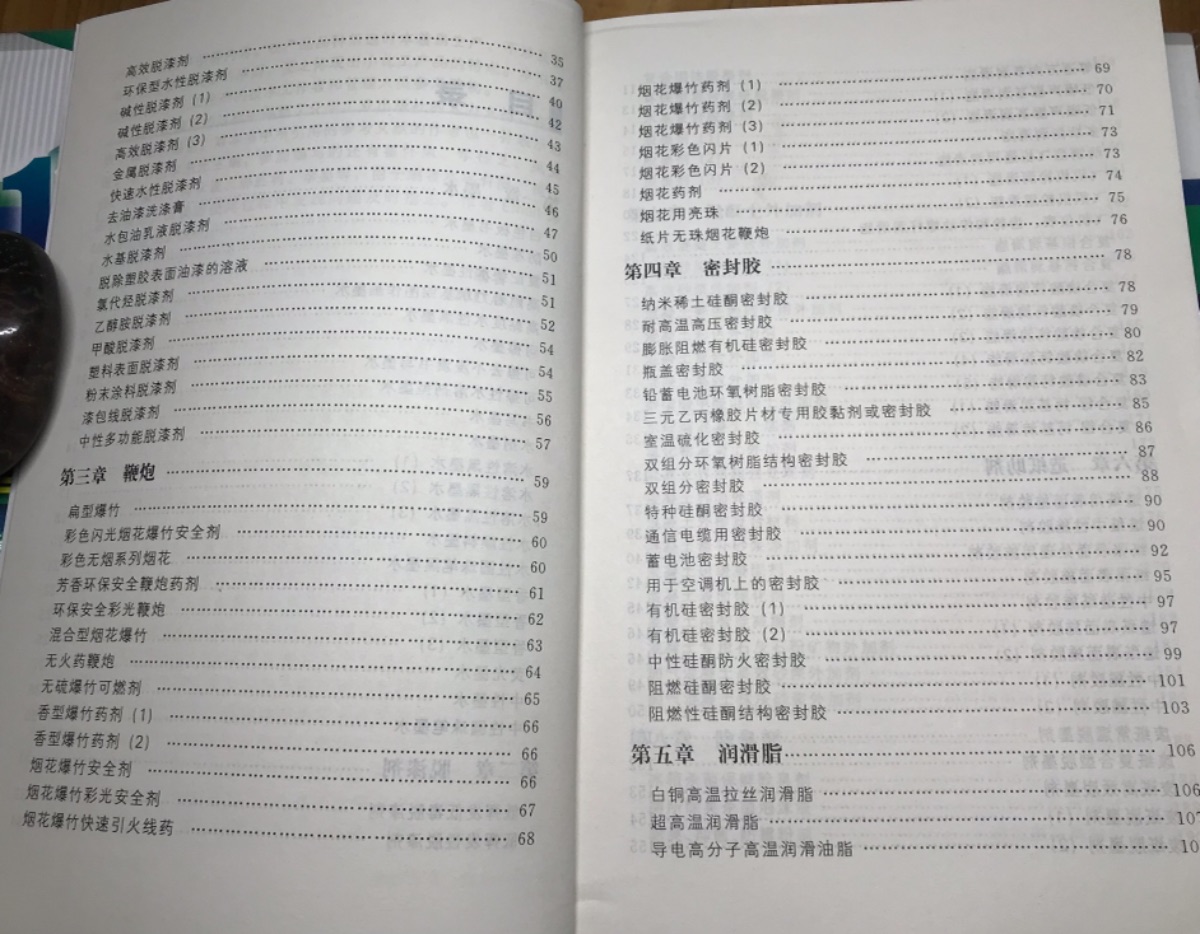 高效脱漆剂 …… 35
环保型水性脱漆剂 …… 37
碱性脱漆剂（1） …… 40
碱性脱漆剂（2） …… 42
高效脱漆剂（3） …… 43
金属脱漆剂 …… 44
快速水性脱漆剂 …… 45
去油漆洗涤膏 …… 46
水包油乳液脱漆剂 …… 47
水基脱漆剂 …… 50
脱除塑胶表面油漆的溶液 …… 51
氯代烃脱漆剂 …… 51
乙醇胺脱漆剂 …… 52
甲酸脱漆剂 …… 54
塑料表面脱漆剂 …… 54
粉末涂料脱漆剂 …… 55
漆包线脱漆剂 …… 56
中性多功能脱漆剂 …… 57
第三章 鞭炮 …… 59
扁型爆竹 …… 59
彩色闪光烟花爆竹安全剂 …… 60
彩色无烟系列烟花 …… 60
芳香环保安全鞭炮药剂 …… 61
环保安全彩光鞭炮 …… 62
混合型烟花爆竹 …… 63
无火药鞭炮 …… 64
无硫爆竹可燃剂 …… 65
香型爆竹药剂（1） …… 66
香型爆竹药剂（2） …… 66
烟花爆竹安全剂 …… 66
烟花爆竹彩光安全剂 …… 67
烟花爆竹快速引火线药 …… 68
烟花爆竹药剂（1） …… 69
烟花爆竹药剂（2） …… 70
烟花爆竹药剂（3） …… 71
烟花彩色闪片（1） …… 73
烟花彩色闪片（2） …… 73
烟花药剂 …… 74
烟花用亮珠 …… 75
纸片无珠烟花鞭炮 …… 76
第四章 密封胶 …… 78
纳米稀土硅酮密封胶 …… 78
耐高温高压密封胶 …… 79
膨胀阻燃有机硅密封胶 …… 80
瓶盖密封胶 …… 82
铅蓄电池环氧树脂密封胶 …… 83
三元乙丙橡胶片材专用胶黏剂或密封胶 …… 85
室温硫化密封胶 …… 86
双组分环氧树脂结构密封胶 …… 87
双组分密封胶 …… 88
特种硅酮密封胶 …… 90
通信电缆用密封胶 …… 90
蓄电池密封胶 …… 92
用于空调机上的密封胶 …… 95
有机硅密封胶（1） …… 97
有机硅密封胶（2） …… 97
中性硅酮防火密封胶 …… 99
阻燃硅酮密封胶 …… 101
阻燃性硅酮结构密封胶 …… 103
第五章 润滑脂 …… 106
白铜高温拉丝润滑脂 …… 106
超高温润滑脂 …… 107
导电高分子高温润滑油脂 …… 10